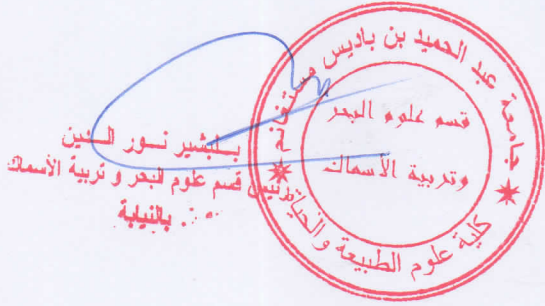 جامعة عبد الحميد بن باديس مستغانم
قسم علوم البحر
وتربية الأسماك
كلية علوم الطبيعة والحياة
بلبشير نور الدين
رئيس قسم علوم البحر و تربية الأسماك
بالنيابة